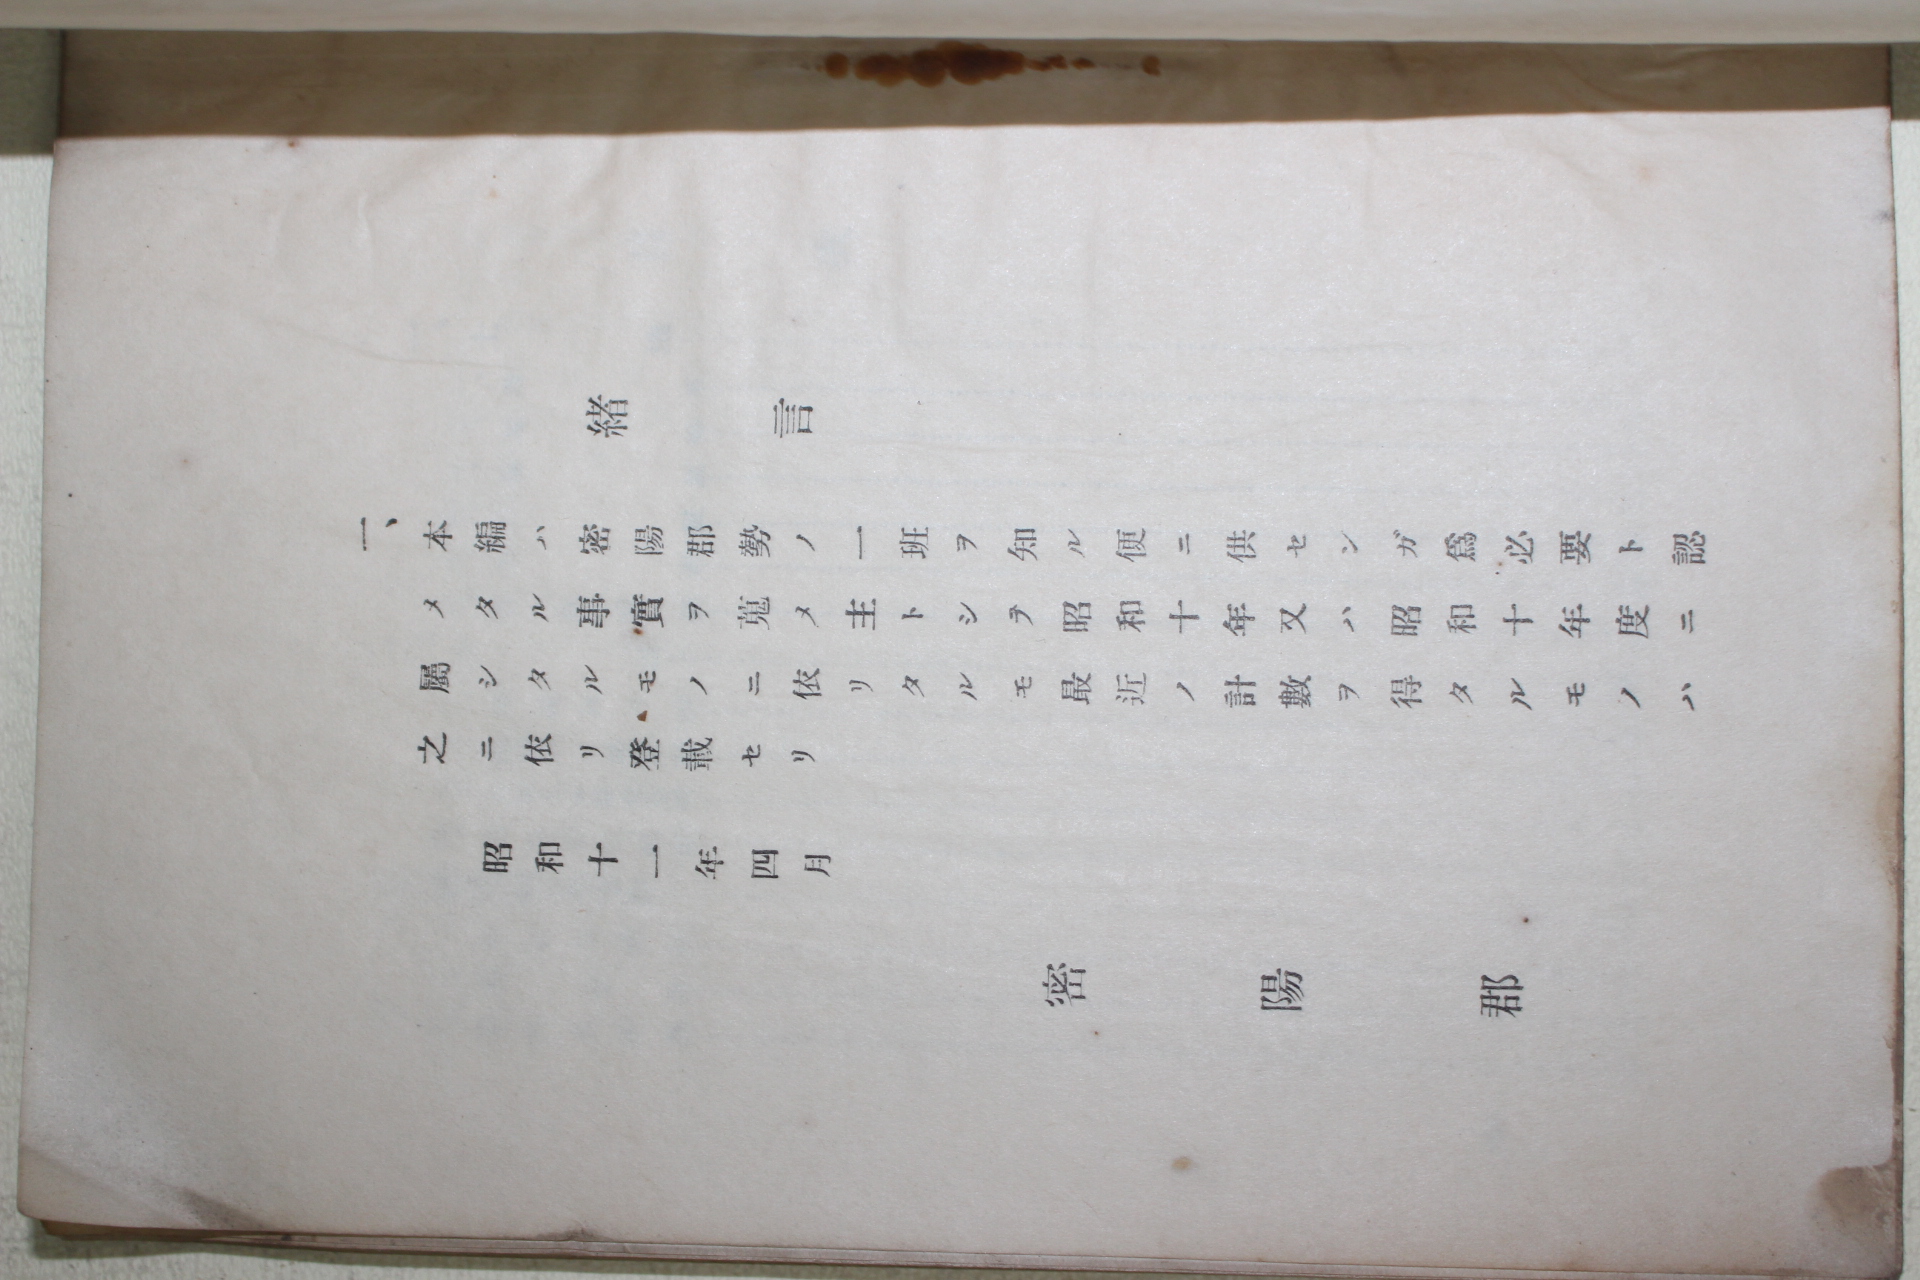 緒言
一、本編ハ密陽郡勢ノ一班ヲ知ル便ニ供センガ爲必要ト認
メタル事實ヲ蒐メ主トシテ昭和十年又ハ昭和十年度ニ
屬シタルモノニ依リタルモ最近ノ計數ヲ得タルモノハ
之ニ依リ登載セリ
昭和十一年四月
密陽郡